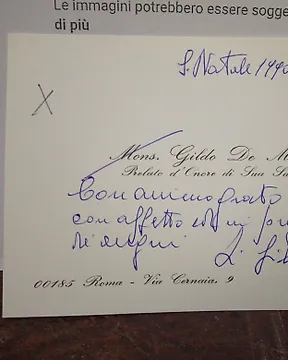 Le immagini potrebbero essere sogge
di più
S. Natale 1990
X
Mons. Gildo De M
Prelato d'Onore di Sua Sa
Con animo grato
con affetto ed
auguri
00185 Roma - Via Cernaia, 9